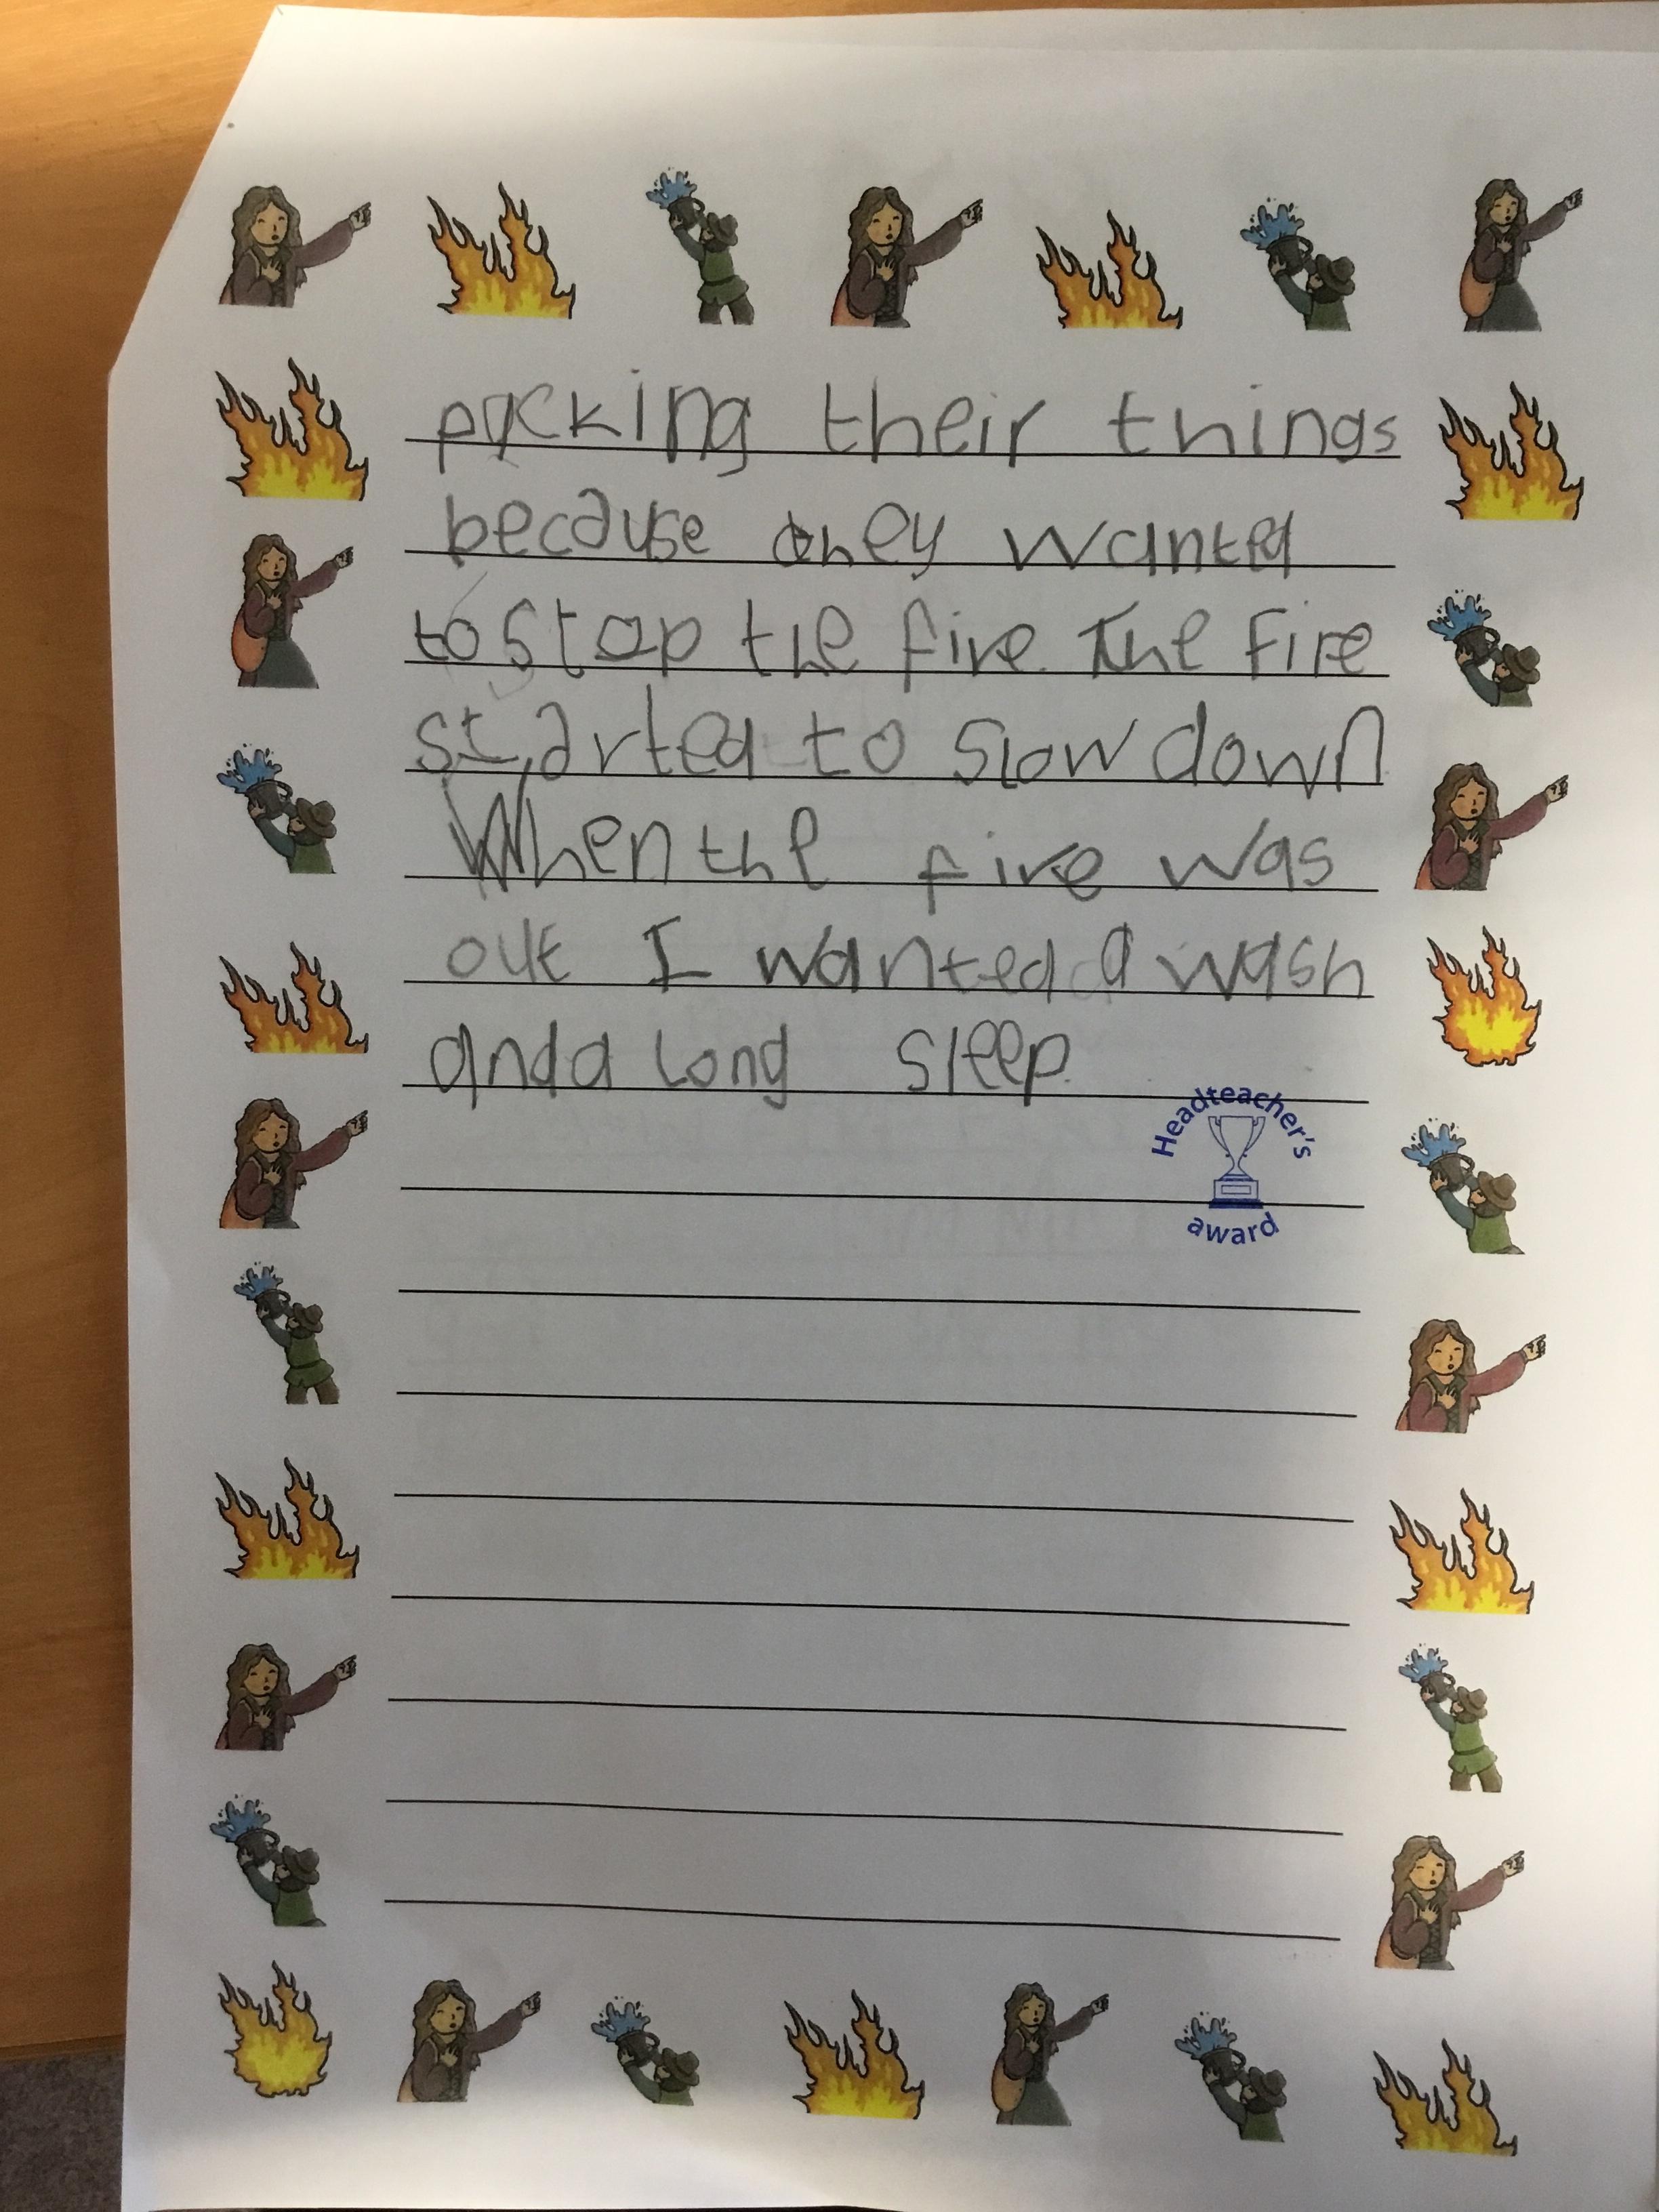 packing their things
because they wanted
to stop the fire. The fire
started to slow down
When the fire was
out I wanted a wash
and a long sleep.
Headteacher's
award